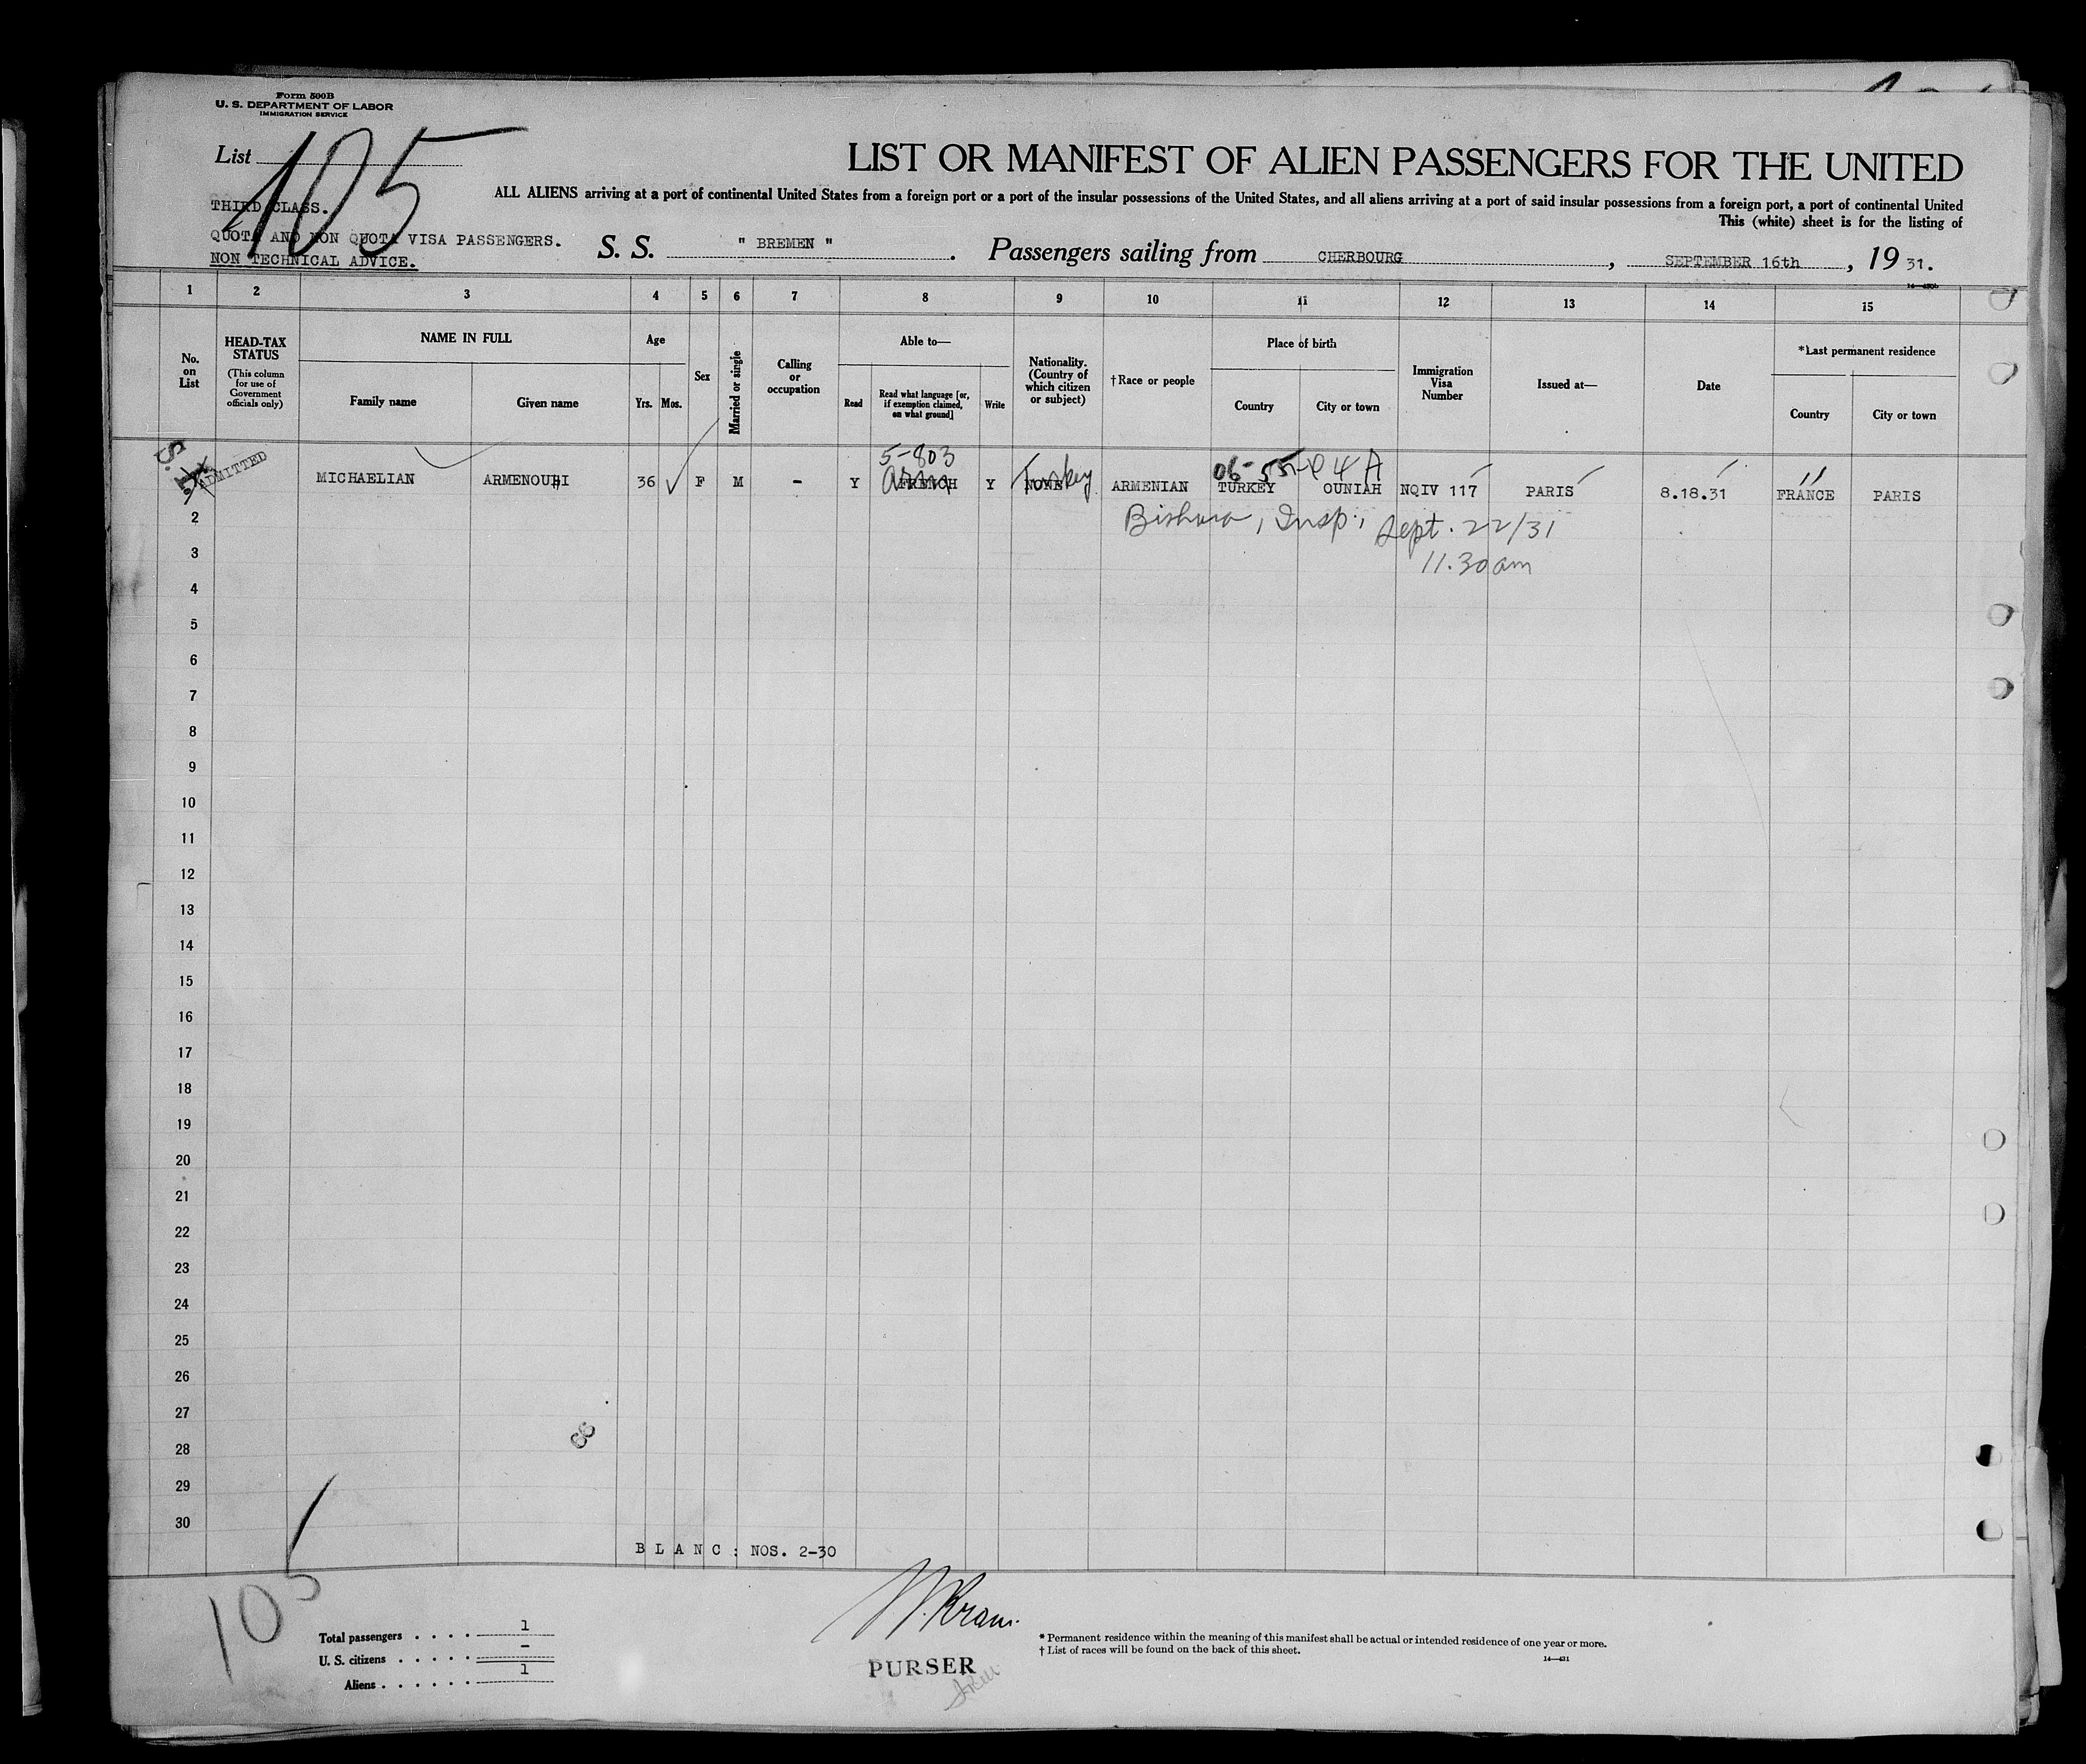 Form 500B
U. S. DEPARTMENT OF LABOR
IMMIGRATION SERVICE
List 105
LIST OR MANIFEST OF ALIEN PASSENGERS FOR THE UNITED
ALL ALIENS arriving at a port of continental United States from a foreign port or a port of the insular possessions of the United States, and all aliens arriving at a port of said insular possessions from a foreign port, a port of continental United
This (white) sheet is for the listing of
THIRD CLASS.
QUOTA AND NON QUOTA VISA PASSENGERS.
NON TECHNICAL ADVICE.
S. S. " BREMEN ". Passengers sailing from CHERBOURG, SEPTEMBER 16th, 19 31.
1 2 3 4 5 6 7 8 9 10 11 12 13 14 15
No. on List
HEAD-TAX STATUS
(This column for use of Government officials only)
NAME IN FULL
Family name Given name
Age
Yrs. Mos.
Sex
Married or single
Calling or occupation
Able to—
Read
Read what language [or, if exemption claimed, on what ground]
Write
Nationality. (Country of which citizen or subject)
†Race or people
Place of birth
Country City or town
Immigration Visa Number
Issued at—
Date
*Last permanent residence
Country City or town
5-803
ADMITTED MICHAELIAN ARMENOUHI 36 F M - Y FRENCH Y NONE Turkey ARMENIAN TURKEY OUNIAH NQIV 117 PARIS 8.18.31 FRANCE PARIS
2 Insp. Sept. 22/31
3 11.30 am
4
5
6
7
8
9
10
11
12
13
14
15
16
17
18
19
20
21
22
23
24
25
26
27
28
29
30
BLANC: NOS. 2-30
105
Total passengers . . . . 1
U. S. citizens . . . . . –
Aliens . . . . . . 1
PURSER
* Permanent residence within the meaning of this manifest shall be actual or intended residence of one year or more.
† List of races will be found on the back of this sheet.
14—431